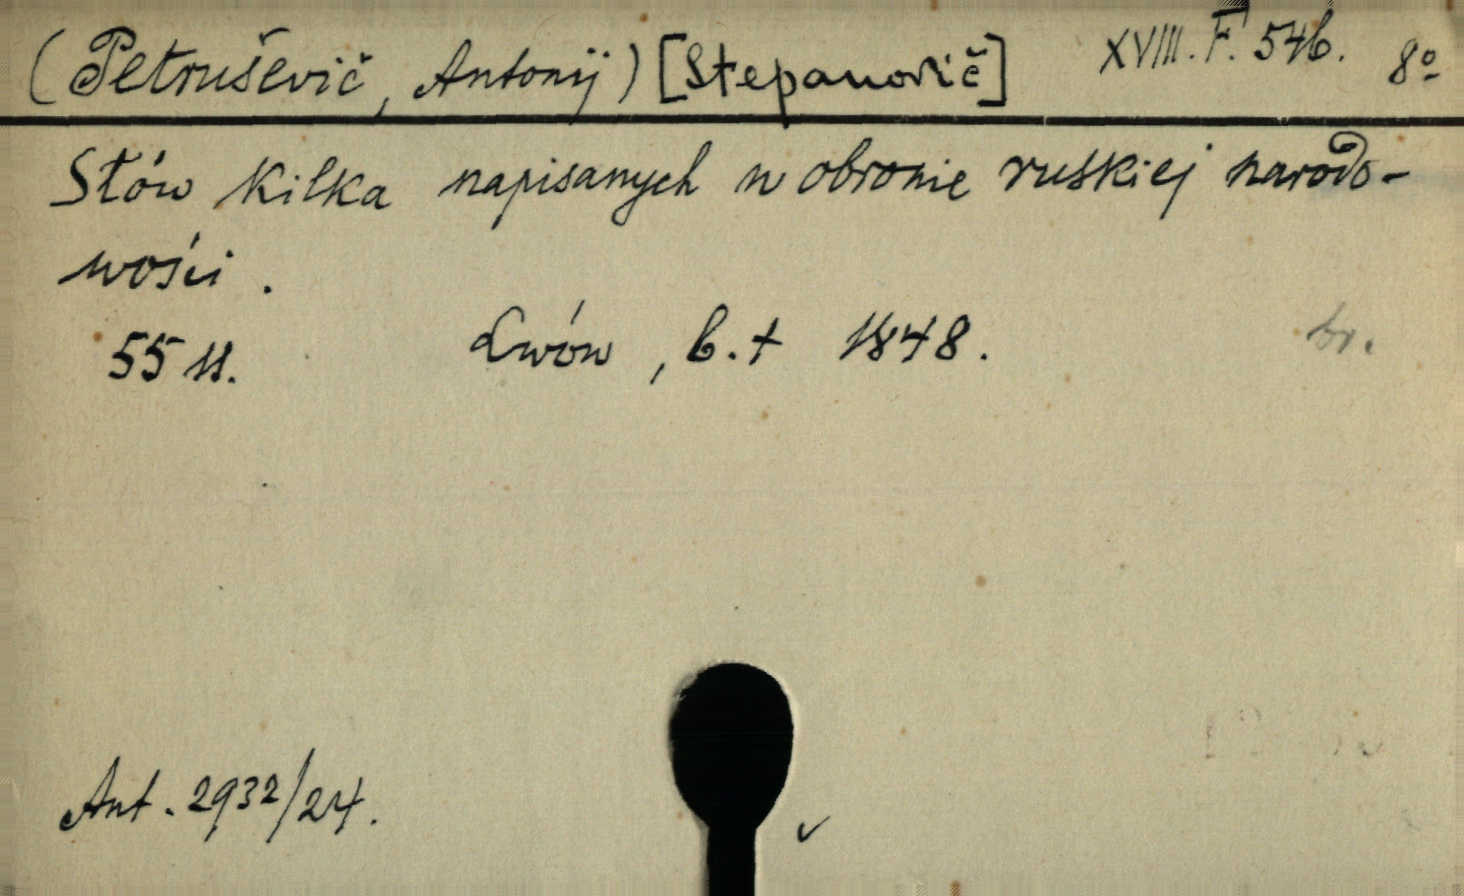 (Petrušević, Antonij) [Stepanovič] XVIII. F. 546. 8º
Słów kilka napisanych w obronie ruskiej narodo-
wości.
55 s. Lwów, b. t 1848. br.
Ant. 2932/24.